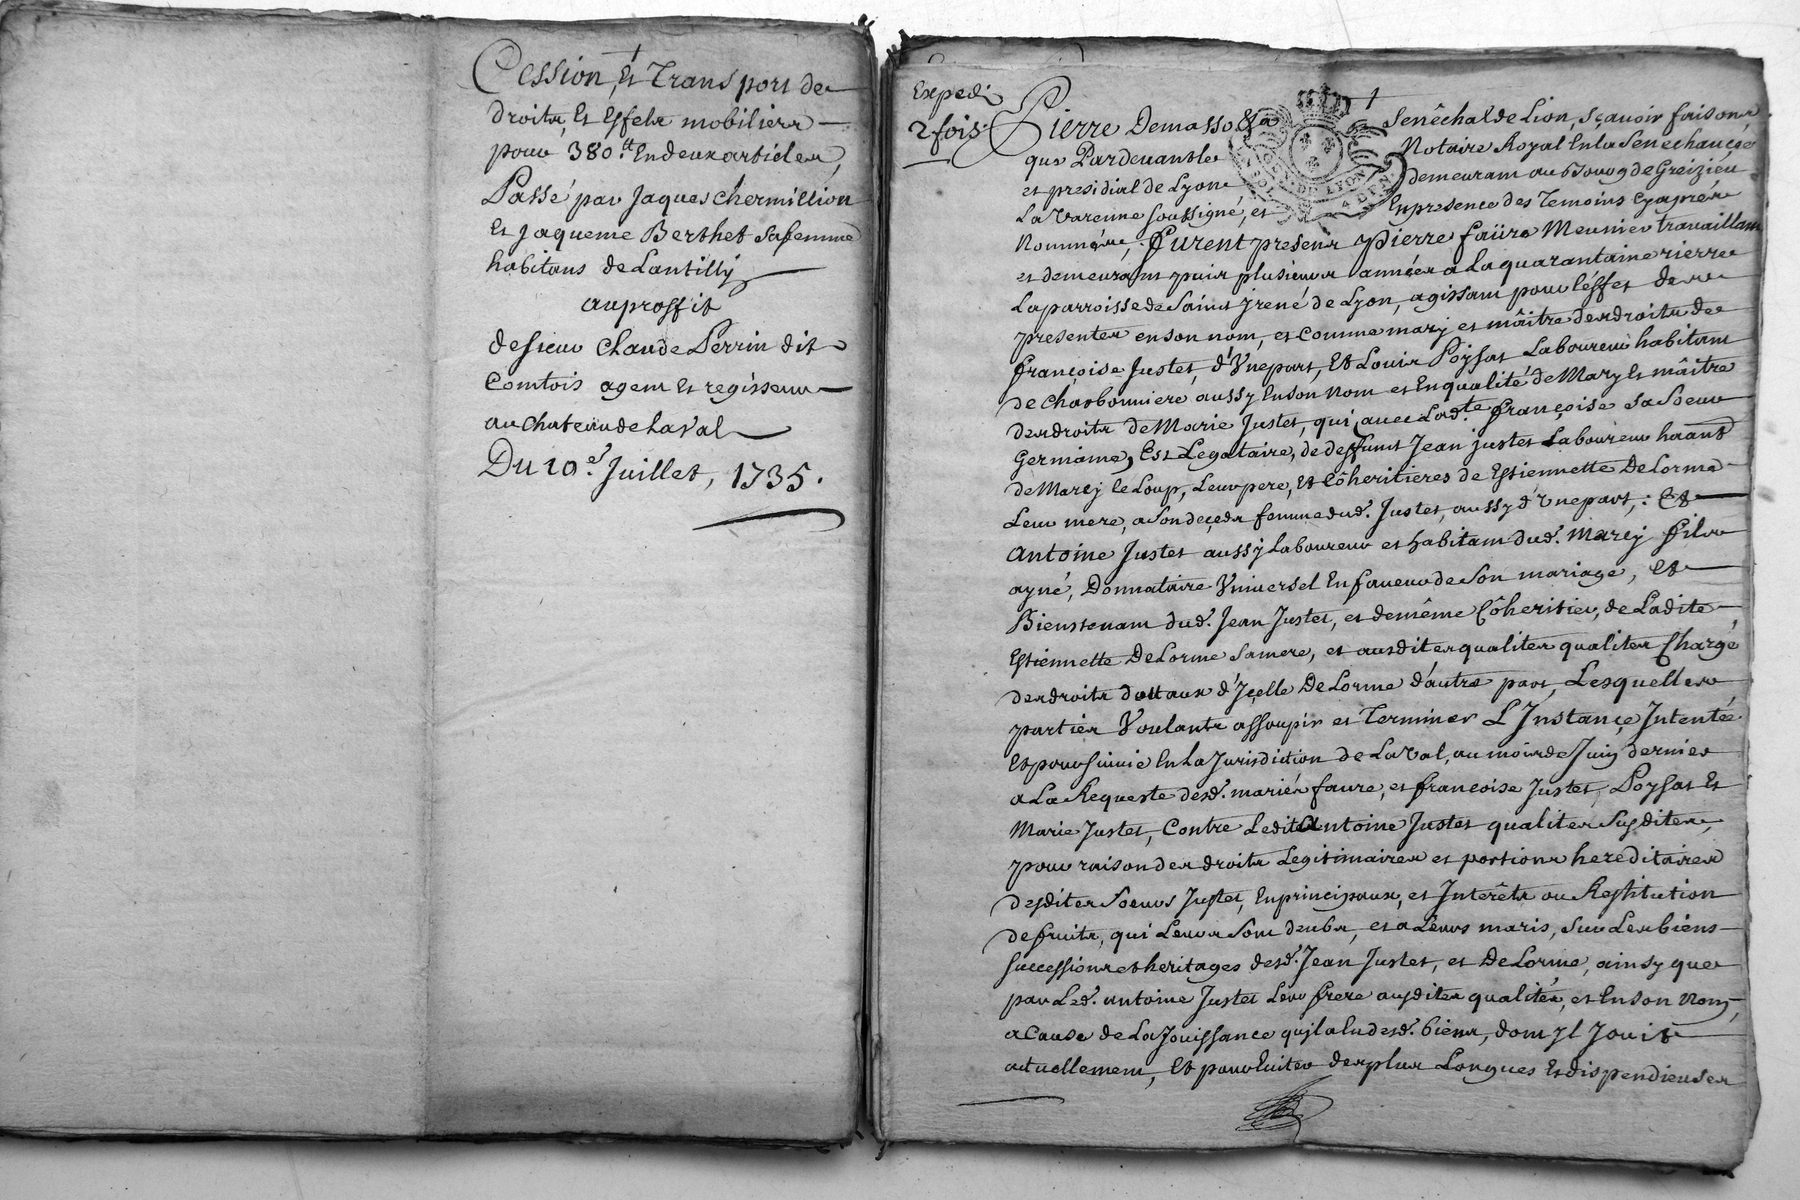 Cession, Et Transport de
droits, Et Effets mobiliers
pour 380.tt En deux articles,
Passé par Jaques Chermillion
Et Jaqueme Berthet Sa femme
habitans de Lantilly
au proffit
de sieur Claude Perrin dit
Comtois agent Et regisseur
au Chateau de Laval
Du 10e. Juillet, 1735.
Expedi
2 fois.
Pierre Demasso
Senêchal de Lion, sçavoir faisons
que Pardevant le
Notaire Royal En la Senechaucée
et presidial de Lyon
demeurant au Bourg de Greizieu
La Varenne soussigné, et
En presence des Temoins cy apres
Nommées, Furent presens Pierre faüre Meunier travaillant
et demeurant puis plusieurs années a La quarantaine rierre
La parroisse de Saint Jrené de Lyon, agissant pour l'éffet des
presentes en son nom, et comme mary et mâitre des droits de
françoise Justet, d'Une part, Et Louis Poysat Laboureur habitant
de Charbonniere aussy En son nom et En qualité de Mary Et mâitre
des droits de Marie Justet, qui avec Lad.te françoise sa Soeur
Germaine, Est Legataire, de deffunt Jean justet Laboureur haant
de Marcy le Loup, Leur pere, Et Côheritieres de Estiennette DeLorme
Leur mere, a Son deçeds femme dud. Justet, aussy d'Une part, : Et
Antoine Justet aussy Laboureur et habitant dud. Marcy Fils
ayné, Donnataire Vniversel En faveur de Son mariage, Et
Bienstenant dud. Jean Justet, et de même Côheritier, de Ladite
Estiennette DeLorme Sa mere, et ausdites qualites qualites Chargé
des droits dottaux d'Jçelle DeLorme d'autre part, Lesquelles
parties Voulants assoupir et Terminer L'Jnstançe Jntentée
Et poursuivie En La Jurisdiction de LaVal, au mois de Juin dernier
a La Requeste desd. mariés faure, et françoise Justet, Poysat Et
Marie Justet, Contre Ledit Antoine Justet qualites Susdites,
pour raison des droits Legitimaires et portions hereditaires
desdites Soeurs Justet, En principaux, et Jnterêts ou Restitution
de fruits, qui Leurs Sont deubs, et a Leurs maris, Sur Les biens
successions et heritages desd. Jean Justet, et DeLorme, ainsy que
par Led. antoine Justet Leur frere ausdites qualités, et En son Nom,
a Cause de La Jouissance qujl a Eu desd. biens, dont yl Jouit
actuellement, Et pour Eviter des plus Longues Et dispendieuses